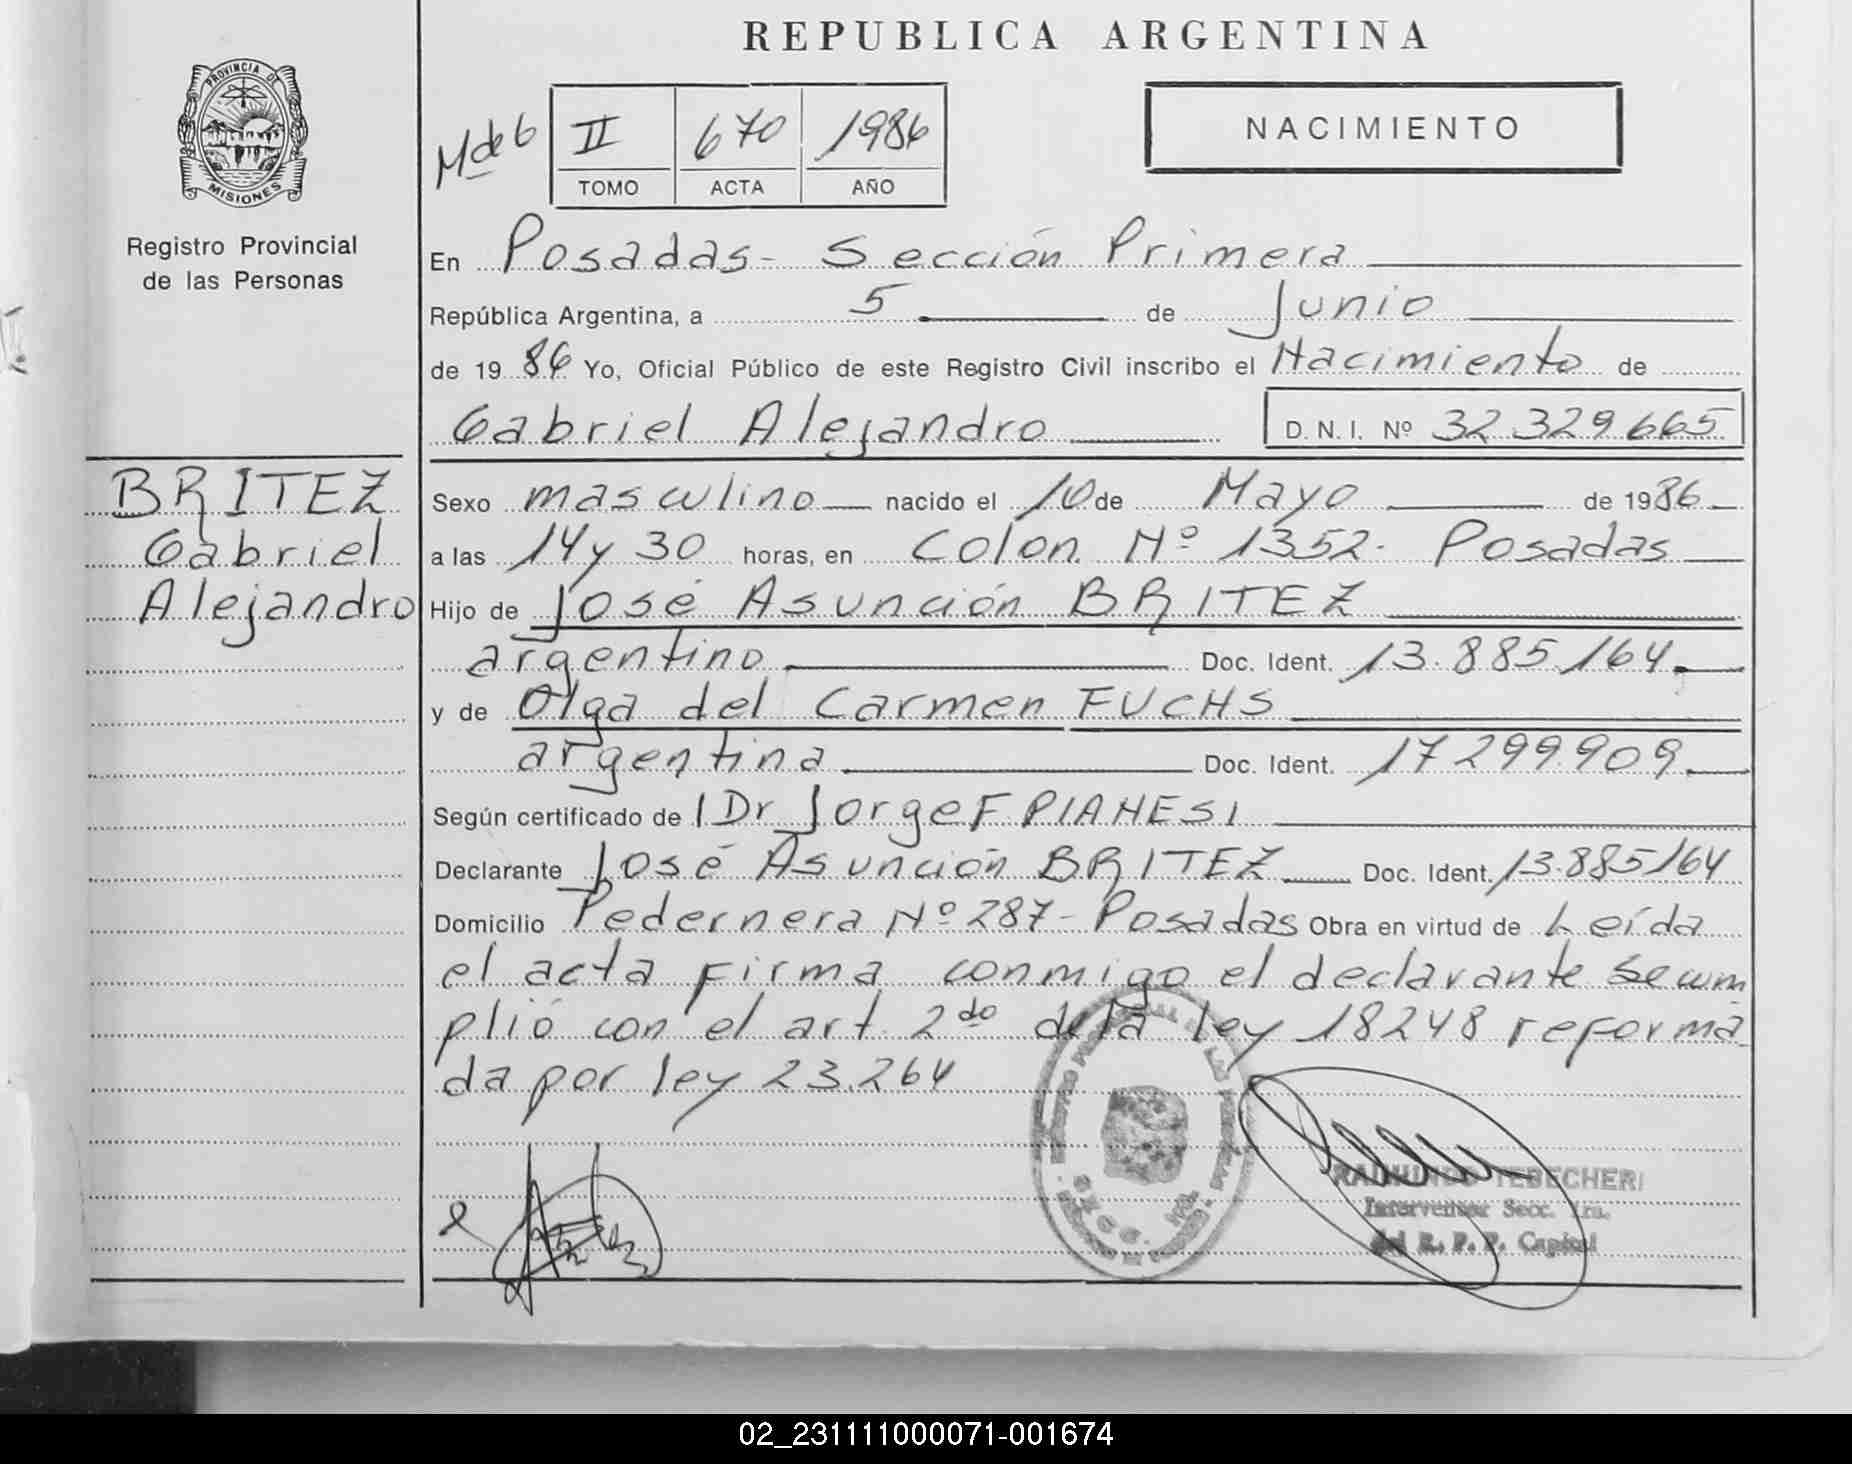 REPUBLICA ARGENTINA
PROVINCIA DE
MISIONES
Registro Provincial
de las Personas
II 670 1986
TOMO ACTA AÑO
NACIMIENTO
En Posadas- Sección Primera
República Argentina, a 5 de Junio
de 1986 Yo, Oficial Público de este Registro Civil inscribo el Nacimiento de
Gabriel Alejandro D. N. I. Nº 32 329 665
BRITEZ
Gabriel
Alejandro
Sexo masculino nacido el 10 de Mayo de 1986
a las 14 y 30 horas, en Colon Nº 1352- Posadas
Hijo de José Asunción BRITEZ
argentino Doc. Ident. 13.885.164
y de Olga del Carmen FUCHS
argentina Doc. Ident. 17 299.909
Según certificado de Dr Jorge F PIANESI
Declarante José Asunción BRITEZ Doc. Ident. 13.885164
Domicilio Pedernera Nº 287- Posadas Obra en virtud de Leída
el acta firma conmigo el declarante Se cum
plió con el art. 2do de la ley 18248 reforma
da por ley 23.264
RAIMUNDO TEBECHERI
Interventor Secc. 1ra.
del R. P. P. Capital
02_231111000071-001674